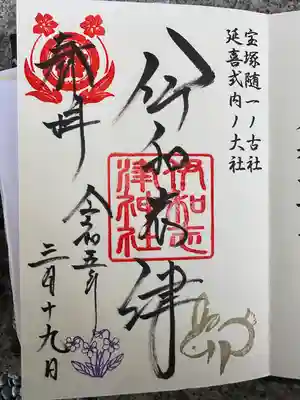 宝塚随一ノ古社
延喜式内ノ大社
伊和志津
伊和志
津神社
奉拝
令和五年
三月十九日